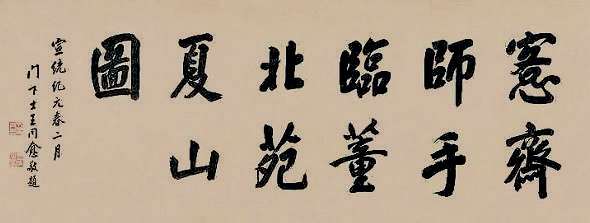 愙齋
師手
臨董
北苑
夏山
圖
宣統紀元春二月
門下士王同愈敬題